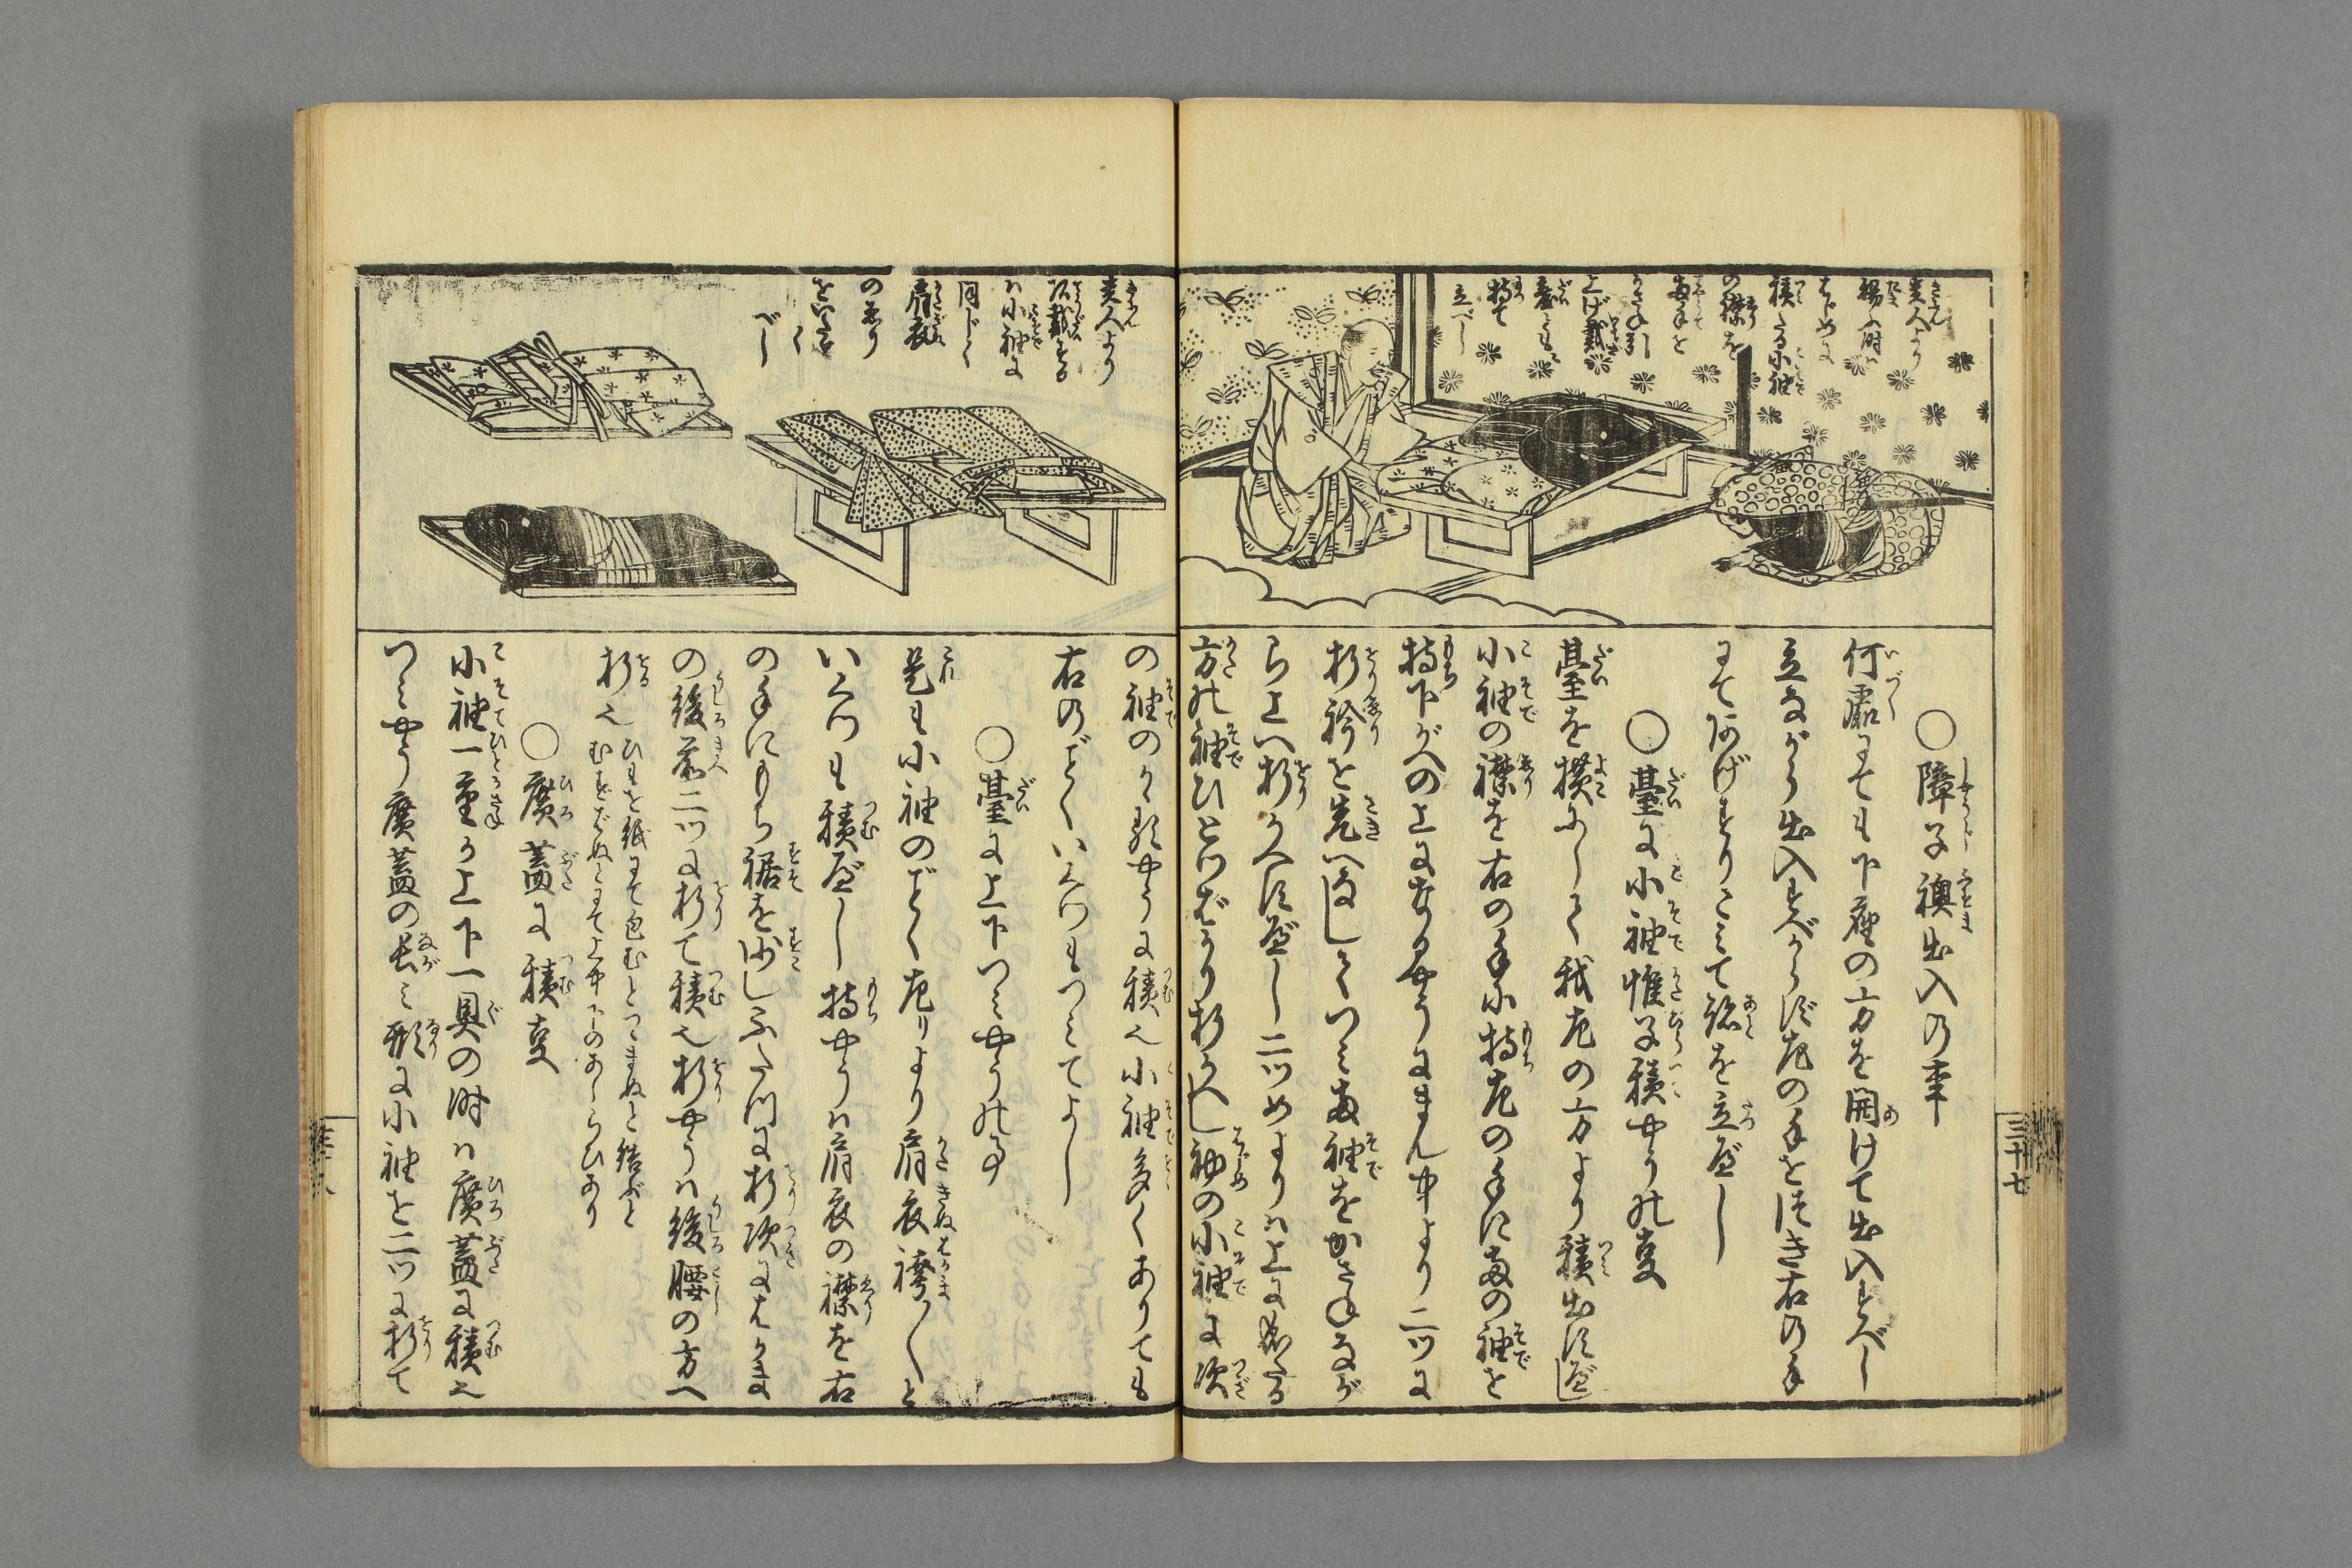 貴人より
賜ふ時ハ
はじめに
積たる小袖
の襟を
両手を
かさね引
上げ戴
臺ともに
持て
立べし
○障子襖出入の事
何處にても下座の方を開けて出入すべし
立ながら出入すべからず左の手をつき右の手
にてあげすりこみて跡を立べし
○臺に小袖帷子積やうの事
臺を横ふして我左の方より積出すべし
小袖の襟を右の手に持左の手に両の袖を
持下がへの上になるやうにまん中より二ツに
折衿を先へなしてつミ両袖をかさねながら
上へ折かへすべし二ツめよりハ上になる
方の袖ひとつばかり折かへし初の小袖に次
三十七
貴人より
頂戴する
ハ小袖に
同じく
肩衣
のゑり
をいたゞく
べし
の袖のかゝるやうに積也小袖多くありても
右のごとくいくつもつミてよし
○臺に上下つミやうの事
是も小袖のごとく左りより肩衣袴〳〵と
いくつも積べし持やうハ肩衣の襟を右
の手にもち裾を少しふたつに折次にはかま
の後前二ツに折て積也折やうハ後腰の方へ
折也
ひもを紙にて包むとつゝまぬと結ぶと
むすばぬとにて上中下のあしらひあり
○廣蓋に積事
小袖一重か上下一具の時ハ廣蓋に積也
つミやう廣蓋の長ミ形に小袖を二ツに折て